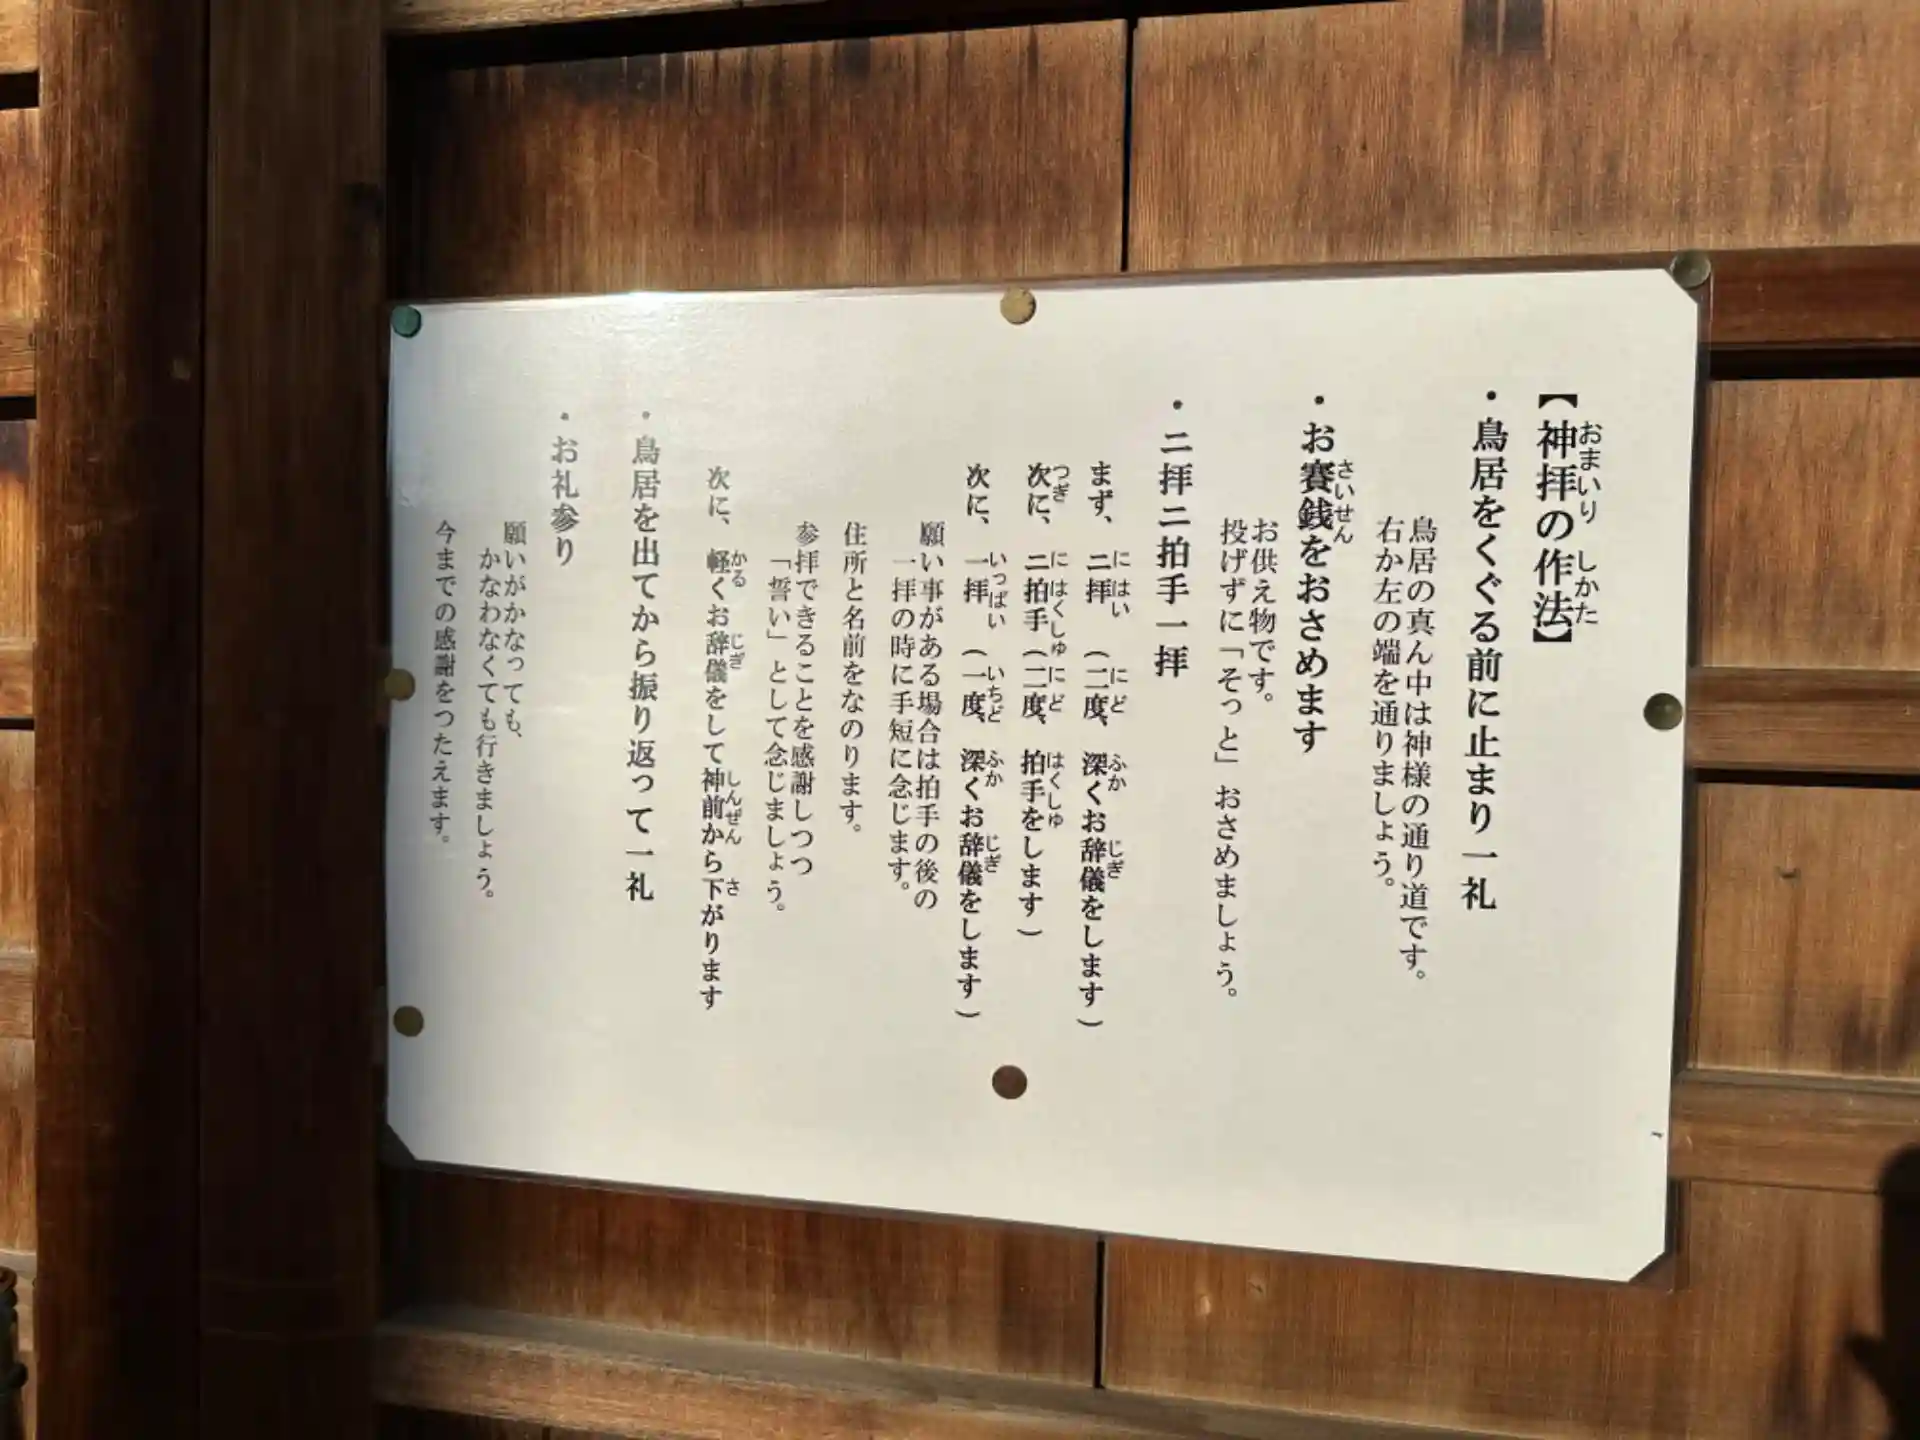 【神拝の作法】
おまいり しかた
・鳥居をくぐる前に止まり一礼
鳥居の真ん中は神様の通り道です。
右か左の端を通りましょう。
・お賽銭をおさめます
さいせん
お供え物です。
投げずに「そっと」おさめましょう。
・二拝二拍手一拝
まず、二拝（二度、深くお辞儀をします）
にはい にど ふか じぎ
次に、二拍手（二度、拍手をします）
つぎ にはくしゅ にど はくしゅ
次に、一拝（一度、深くお辞儀をします）
いっぱい いちど ふか じぎ
願い事がある場合は拍手の後の
一拝の時に手短に念じます。
住所と名前をなのります。
参拝できることを感謝しつつ
「誓い」として念じましょう。
次に、軽くお辞儀をして神前から下がります
かる じぎ しんぜん さ
・鳥居を出てから振り返って一礼
・お礼参り
願いがかなっても、
かなわなくても行きましょう。
今までの感謝をつたえます。